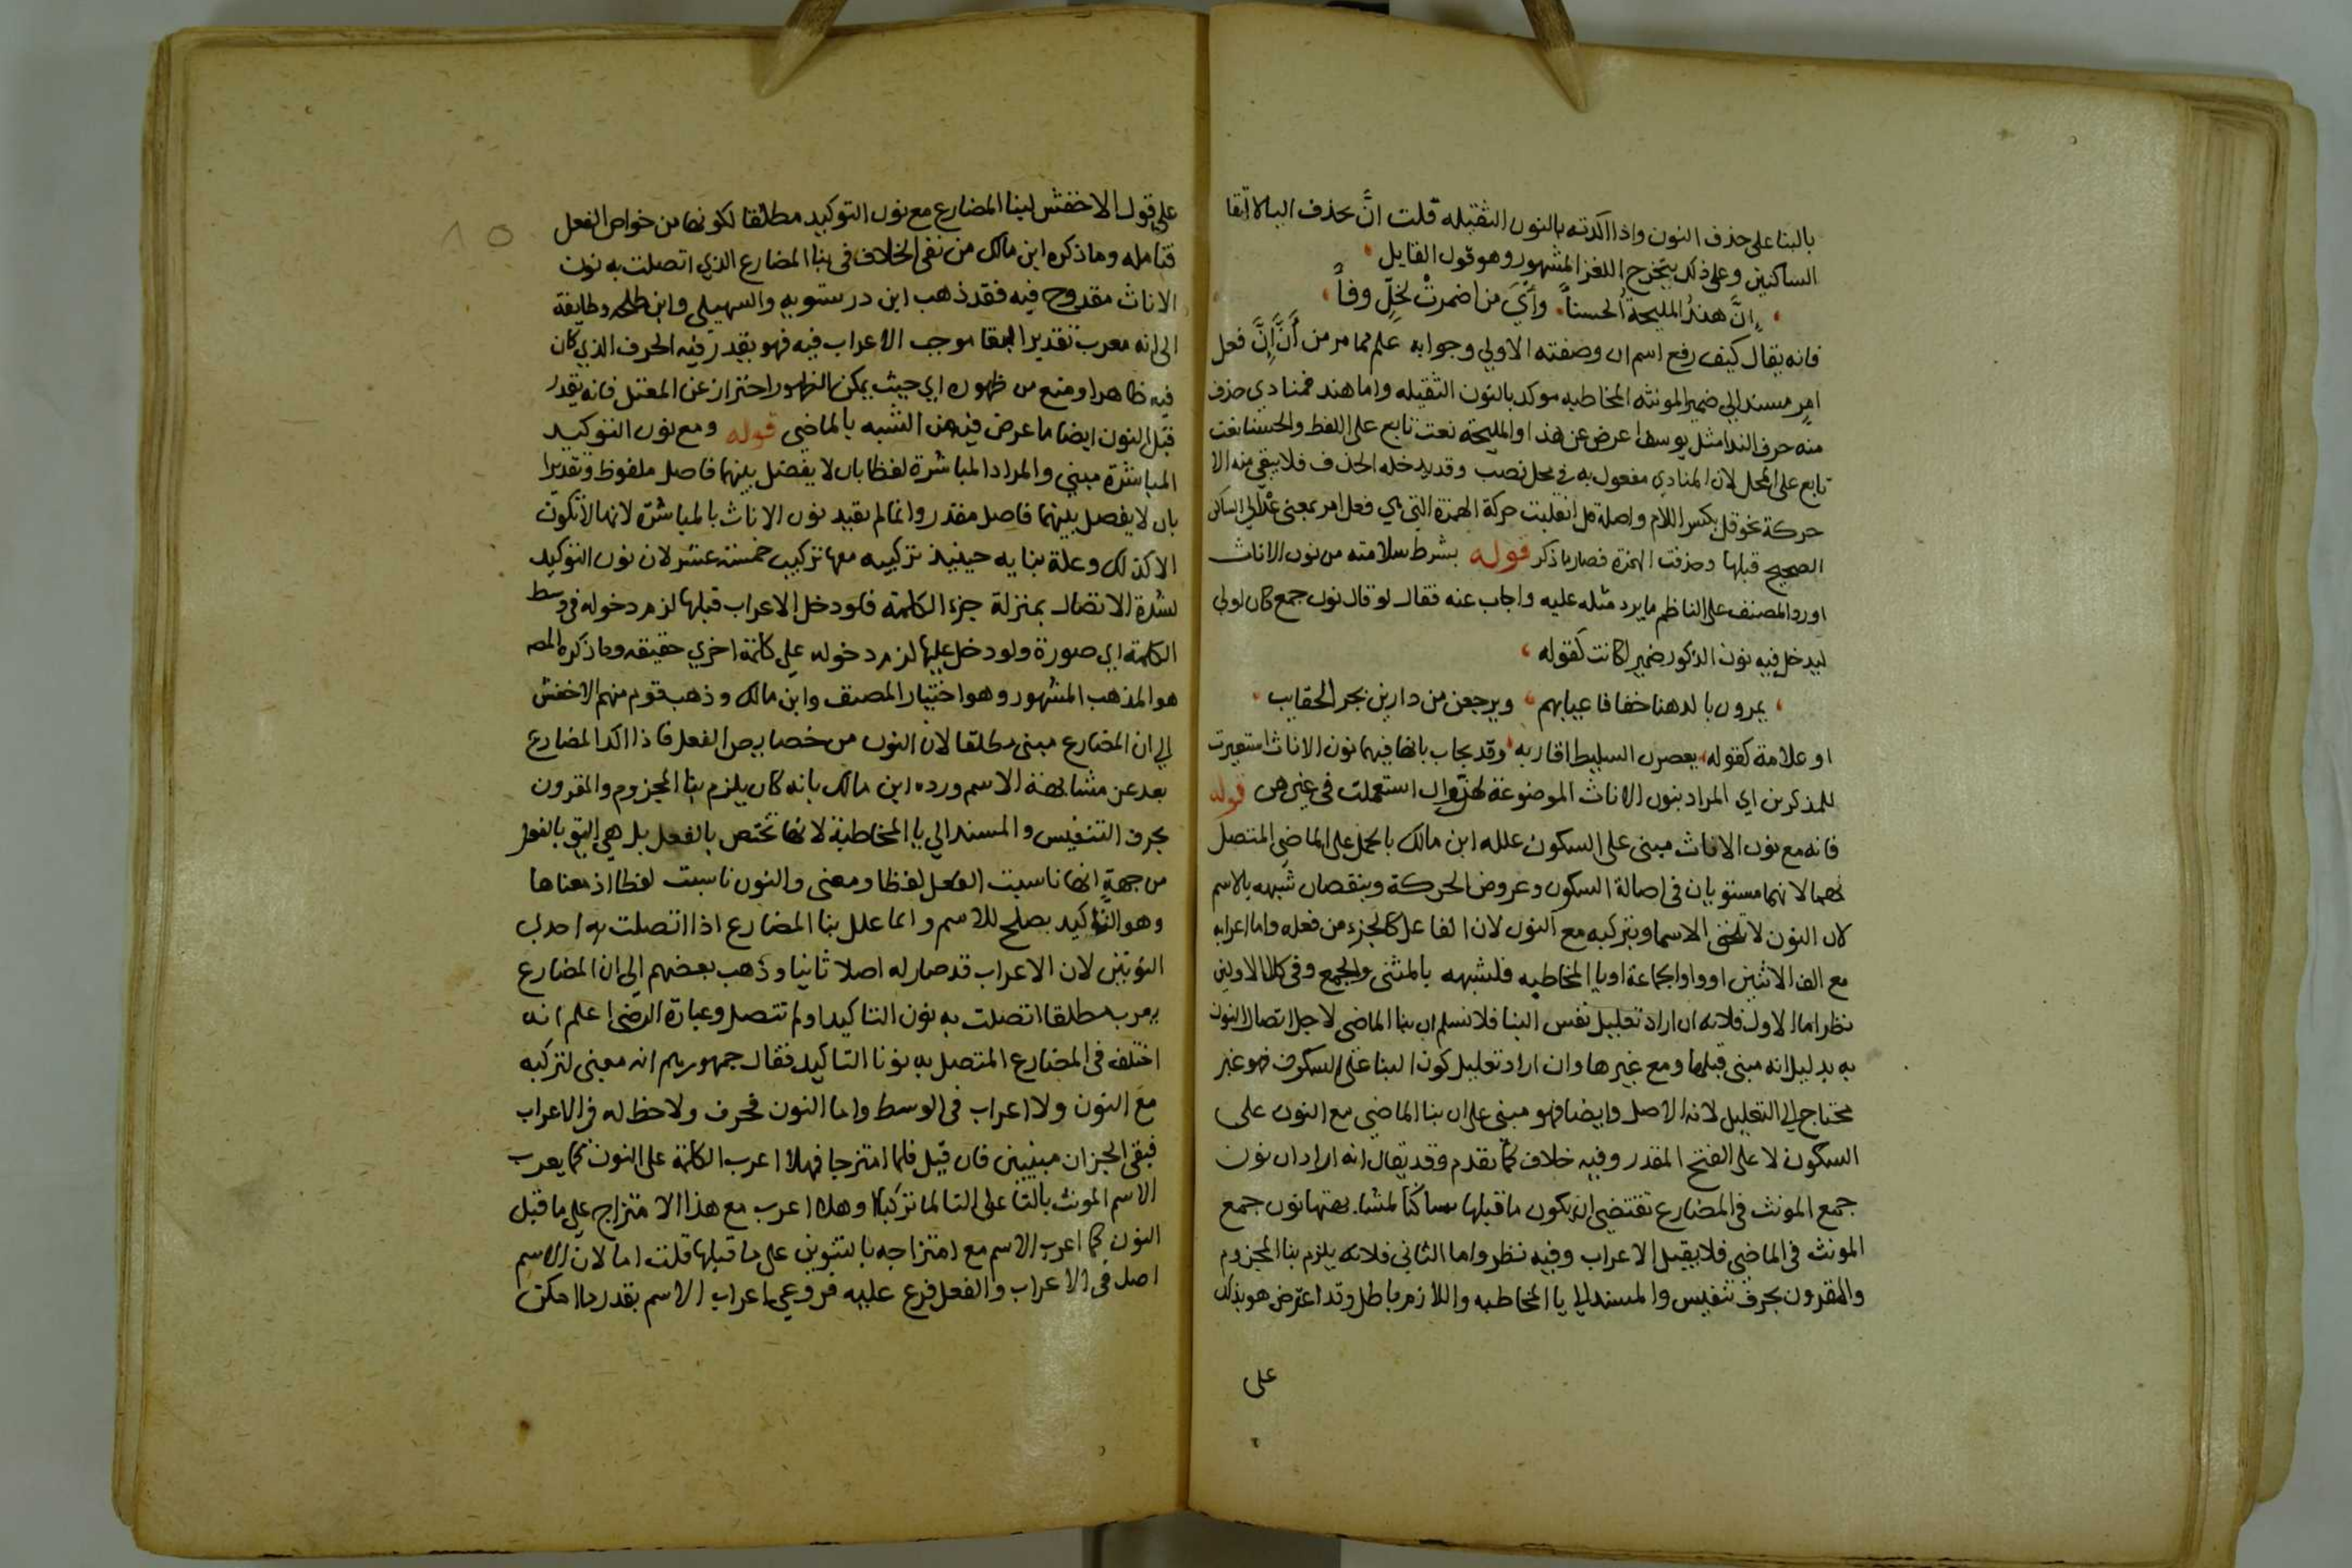 بالبنا على حذف النون واذا اكدته بالنون الثقيله قلت انَّ بحذف اليا لالتقا
الساكنين وعلى ذلك يتخرج اللغز المشهور وهو قول القايل
إنَّ هندُ المليحةُ الحسناً وأيَ من اضمرتْ لخِلٍّ وفاً
فانه يقال كيف رفع اسم ان وصفته الاولي وجوابه علم مما مر من أنَّ إنَّ فعل
امرٍ مسند الي ضمير المونثه المخاطبه موكد بالنون الثقيله واما هند فمنادي حذف
منه حرف الندا مثل يوسف اعرض عن هذا والمليحة نعت تابع على اللفظ والحسنا نعت
تابع على المحل لان المنادي مفعول به في محل نصب وقد يدخله الحذف فلا يبقي منه الا
حركة نحو قل بكسر اللام واصله قل انقلبت حركة الهمزة التي هي فعل امر بمعنى عد الي الساكن
الصحيح قبلها وحذفت الهمزة فصار ما ذكر قوله بشرط سلامته من نون الاناث
اورد المصنف على الناظم ما يرد مثله عليه واجاب عنه فقال لو قال نون جمع كان اولي
ليدخل فيه نون الذكور ضمير اكانت كقوله
يمرون بالدهنا خفافا عيابهم ويرجعن من دارين بجر الحقايب
او علامة كقوله يعصرن السليط اقاربه وقد يجاب بانها فيهما نون الاناث استعيرت
للمذكرين اي المراد بنون الاناث الموضوعة لهن وان استعملت في غيرهن قوله
فانه مع نون الاناث مبنى على السكون علله ابن مالك بالحمل على الماضي المتصل
بهما لانهما مستويان في اصالة السكون وعروض الحركة وبنقصان شبهه بالاسم
لان النون لا تلحق الاسما وبتركبه مع النون لان الفاعل كالجزء من فعله واما اعرابه
مع الف الاثنين او واو الجماعة او يا المخاطبه فلشبهه بالمثنى والجمع وفي كلا الاولين
نظر اما الاول فلانه ان اراد تعليل نفس البنا فلا نسلم ان بنا الماضي لاجل اتصال النون
به بدليل انه مبنى قبلها ومع غيرها وان اراد تعليل كون البنا على السكون فهو غير
محتاج الي التعليل لانه الاصل وايضا فهو مبنى على ان بنا الماضي مع النون على
السكون لا على الفتح المقدر وفيه خلاف كما تقدم وقد يقال انه اراد ان نون
جمع المونث في المضارع تقتضي ان يكون ما قبلها ساكنًا لمشابهتها نون جمع
المونث في الماضي فلا يقبل الاعراب وفيه نظر واما الثاني فلانه يلزم بنا المجزوم
والمقرون بحرف تنفيس والمسند الي يا المخاطبه واللازم باطل وقد اعترض هو بذلك
على
على قول الاخفش لبنا المضارع مع نون التوكيد مطلقا لكونها من خواص الفعل
فتامله وما ذكره ابن مالك من نفي الخلاف في بنا المضارع الذي اتصلت به نون
الاناث مقدوح فيه فقد ذهب ابن درستويه والسهيلي وابن طلحه وطايفة
الى انه معرب تقديرا لبقا موجب الاعراب فيه فهو يقدر فيه الحرف الذي كان
فيه ظاهرا ومنع من ظهوره اي حيث يمكن الظهور احتراز عن المعتل فانه يقدر
قبل النون ايضا ما عرض فيه من الشبه بالماضي قوله ومع نون التوكيد
المباشرة مبنى والمراد المباشرة لفظا بان لا يفصل بينهما فاصل ملفوظ وتقديرا
بان لا يفصل بينهما فاصل مقدر وانما لم يقيد نون الاناث بالمباشرة لانها لا تكون
الا كذلك وعلة بنايه حينيذ تركيبه معها تركيب خمسة عشر لان نون التوكيد
لشدة الاتصال بمنزلة جزء الكلمة فلو دخل الاعراب قبلها لزم دخوله في وسط
الكلمة اي صورة ولو دخل عليها لزم دخوله على كلمة اخري حقيقه وما ذكره المصـ
هو المذهب المشهور وهو اختيار المصنف وابن مالك وذهب قوم منهم الاخفش
الي ان المضارع مبنى مطلقا لان النون من خصايص الفعل فاذا اكد المضارع
بعد عن مشابهة الاسم ورده ابن مالك بانه كان يلزم بنا المجزوم والمقرون
بحرف التنفيس والمسند الي يا المخاطبة لانها تختص بالفعل بل هي اليق بالفعل
من جهة انها ناسبت الفعل لفظا ومعنى والنون ناسبت لفظا اذ معناها
وهو التاكيد يصلح للاسم وانما علل بنا المضارع اذا اتصلت به احدي
النونين لان الاعراب قد صار له اصلا ثانيا وذهب بعضهم الى ان المضارع
يعرب مطلقا اتصلت به نون التاكيد او لم تتصل وعبارة الرضي اعلم انه
اختلف في المضارع المتصل به نونا التاكيد فقال جمهورهم انه مبنى لتركبه
مع النون ولا اعراب في الوسط واما النون فحرف ولا حظ له في الاعراب
فبقى الجزان مبنيين فان قيل فلما امتزجا فهلا اعرب الكلمة على النون كما يعرب
الاسم المونث بالتا على التا لما تركبا وهلا اعرب مع هذا الامتزاج على ما قبل
النون كما اعرب الاسم مع امتزاجه بالتنوين على ما قبلها قلت اما لان الاسم
اصل في الاعراب والفعل فرع عليه فروعي اعراب الاسم بقدر ما امكن